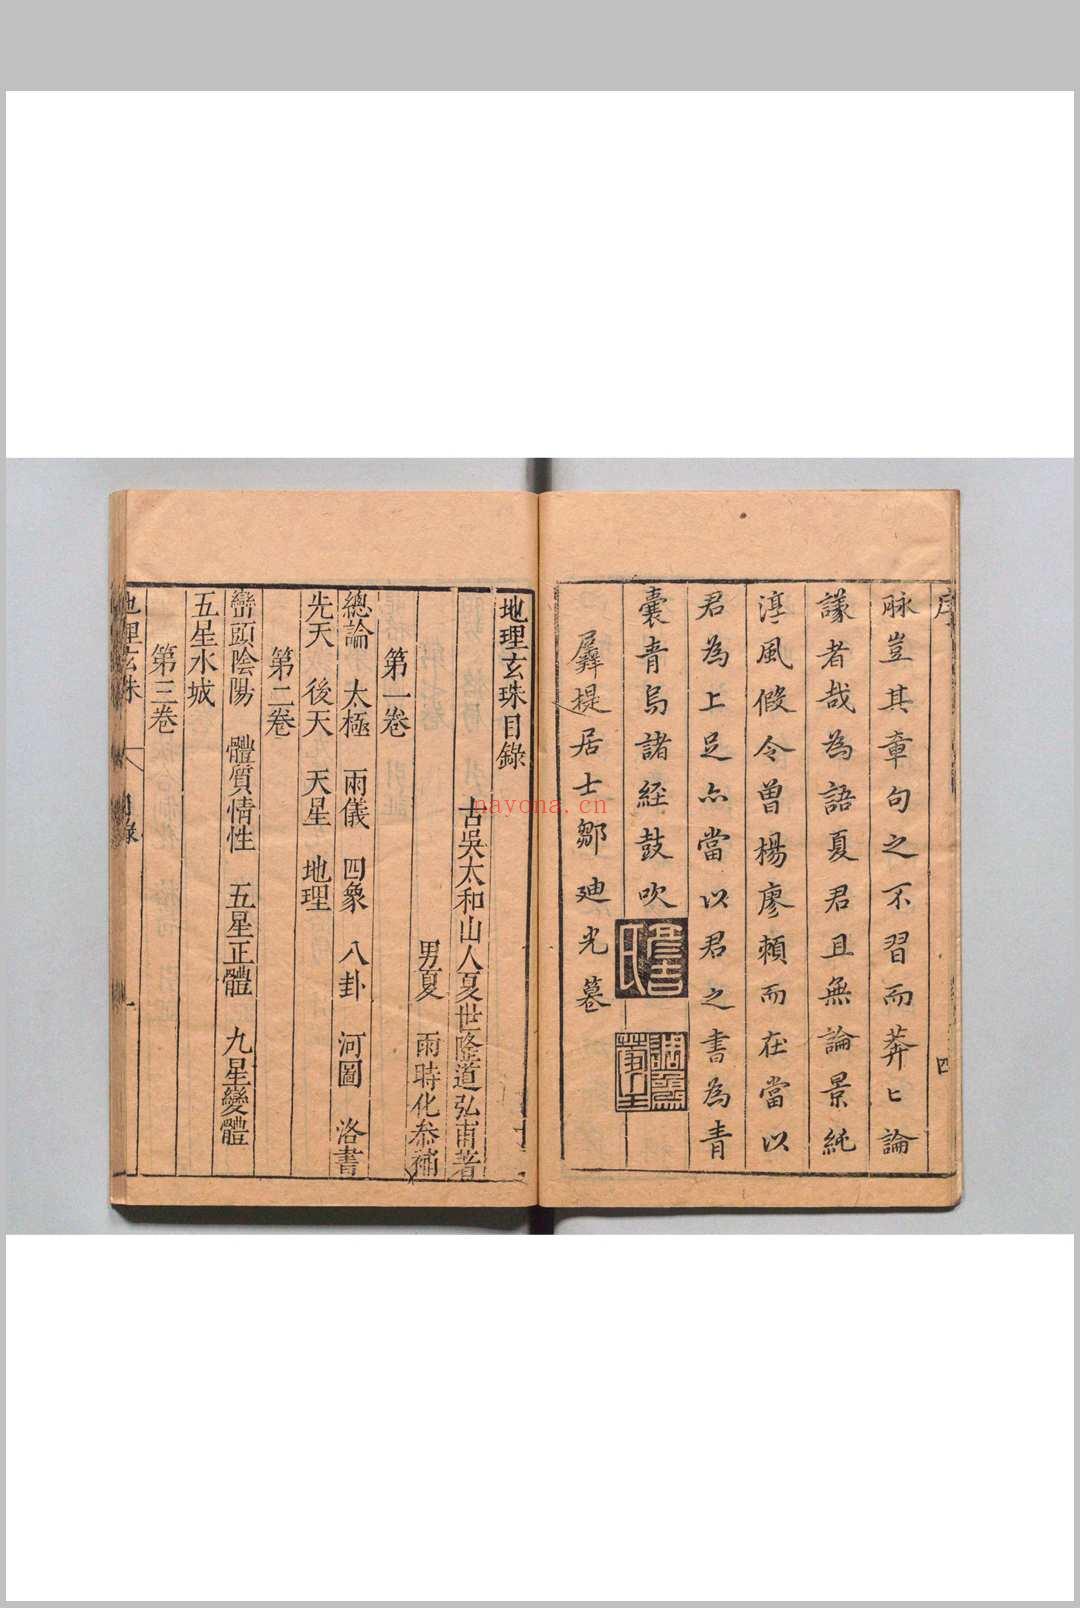 序
四
脉豈其章句之不習而莽匕論
謙者哉為語夏君且無論景純
淳風假令曽楊廖頼而在當以
君為上足亦當以君之書為青
囊青烏諸經鼓吹
居士鄒廸光
地理玄珠目錄
古吳太和山人夏世隆道弘甫著
男夏 雨時化叅補
第一卷
總論 太極 兩儀 四象 八卦 河圖 洛書
先天 後天 天星 地理
第二卷
巒頭陰陽 體質情性 五星正體 九星變體
五星水城
第三卷
地理玄珠
目錄
一
nayona.cn